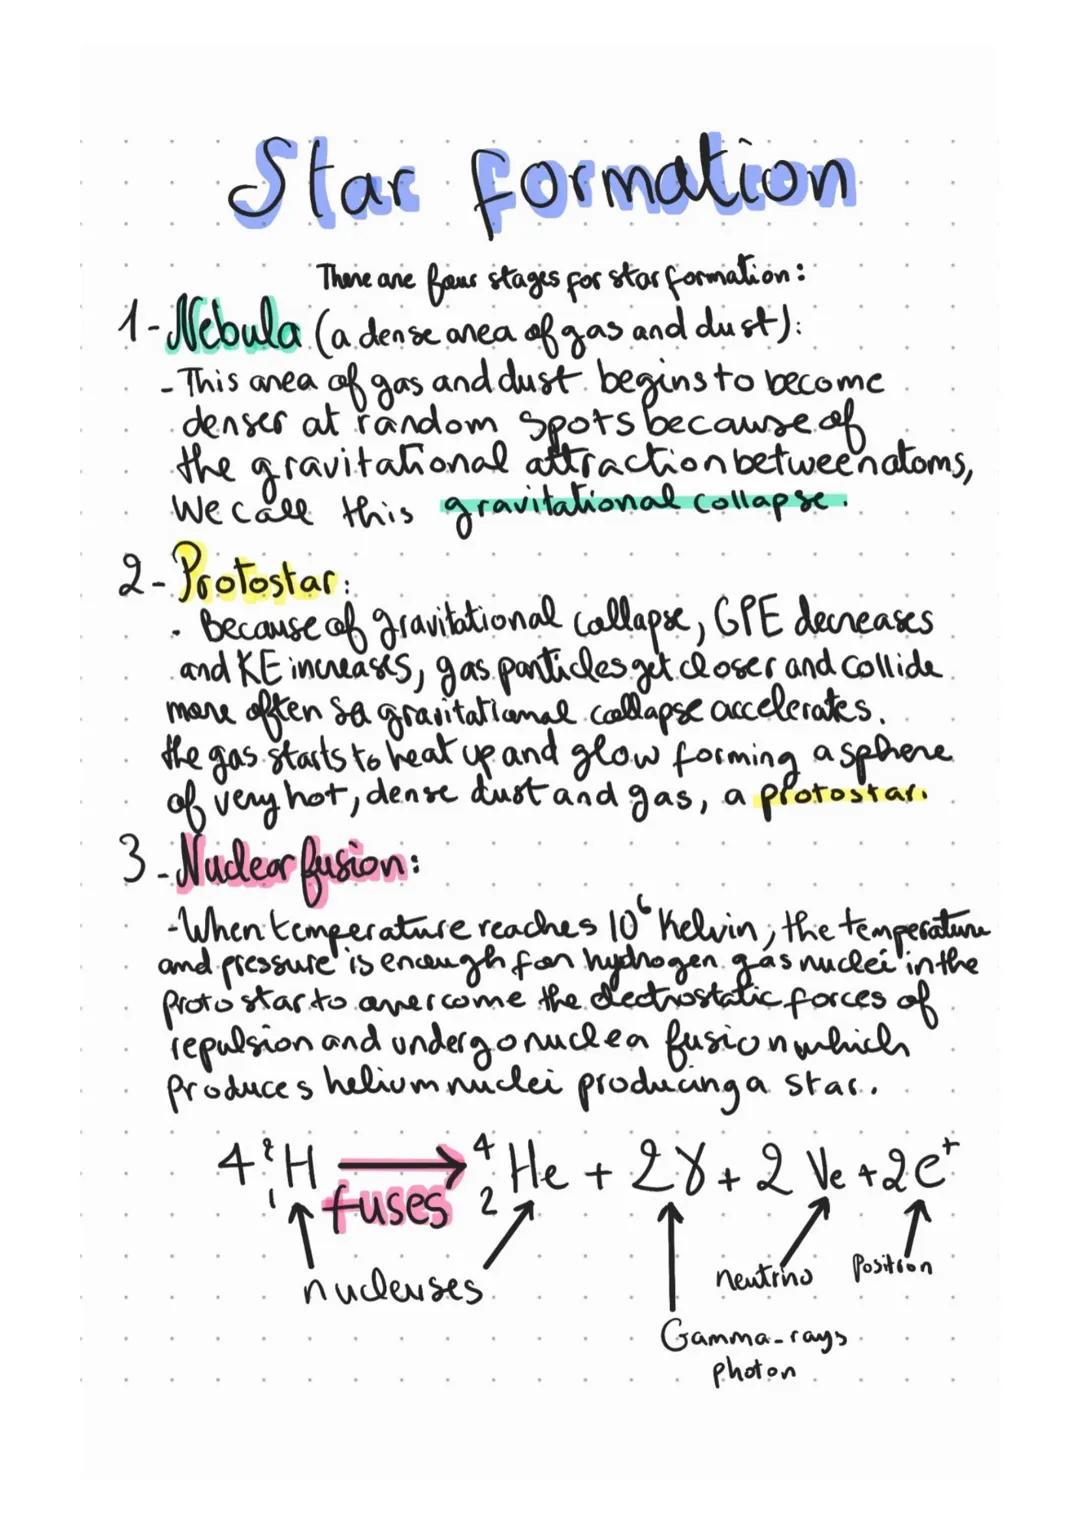 Star formation
There are four stages for star formation:
1-Nebula (a dense area of gas and dust):
-This area of gas and dust begins to become
denser at random spots because of
the gravitational attraction between atoms,
We call this gravitational collapse.
2-Protostar:
. Because of gravitational collapse, GPE decreases
and KE increases, gas particles get closer and collide
more often so gravitational collapse accelerates.
the gas starts to heat up and glow forming a sphere
of very hot, dense dust and gas, a protostar.
3-Nuclear fusion:
-When temperature reaches 10⁶ Kelvin, the temperature
and pressure is enough for hydrogen gas nuclei in the
Protostar to overcome the electrostatic forces of
repulsion and undergo nuclea fusion which
produces helium nuclei producing a star.
4 ₁H → ⁴₂He + 2γ + 2 Ve + 2e⁺
fuses
nucleuses
neutrino
Positron
Gamma-rays
photon